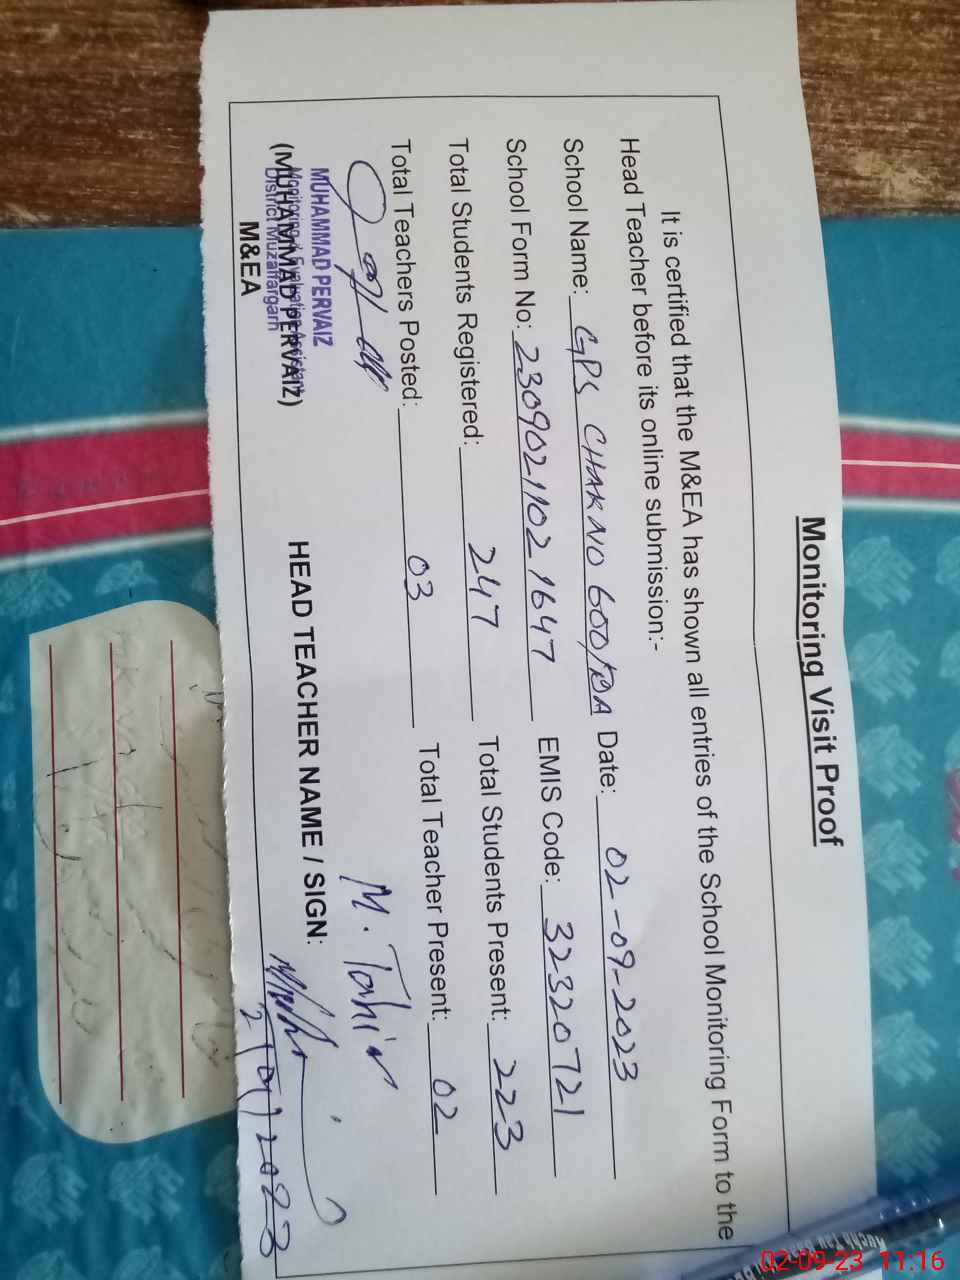 Monitoring Visit Proof
It is certified that the M&EA has shown all entries of the School Monitoring Form to the
Head Teacher before its online submission:-
School Name: GPS CHAK NO 600/TDA Date: 02-09-2023
School Form No: 23090211021647 EMIS Code: 32320721
Total Students Registered: 247 Total Students Present: 223
Total Teachers Posted: 03 Total Teacher Present: 02
M. Tahir
MUHAMMAD PERVAIZ
Monitoring & Evaluation Assistant
District Muzaffargarh
(MUHAMMAD PERVAIZ)
M&EA
HEAD TEACHER NAME / SIGN:
2/09/2023
02-09-23 11:16